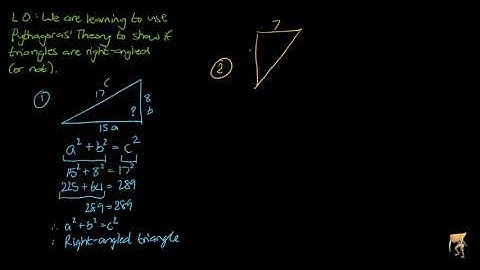 L.O.: We are learning to use
Pythagoras' Theory to show if
triangles are right-angled
(or not).
①
c
17
8
?
b
15 a
a² + b² = c²
15² + 8² = 17²
225 + 64 = 289
289 = 289
∴ a² + b² = c²
∴ Right-angled triangle
②
7